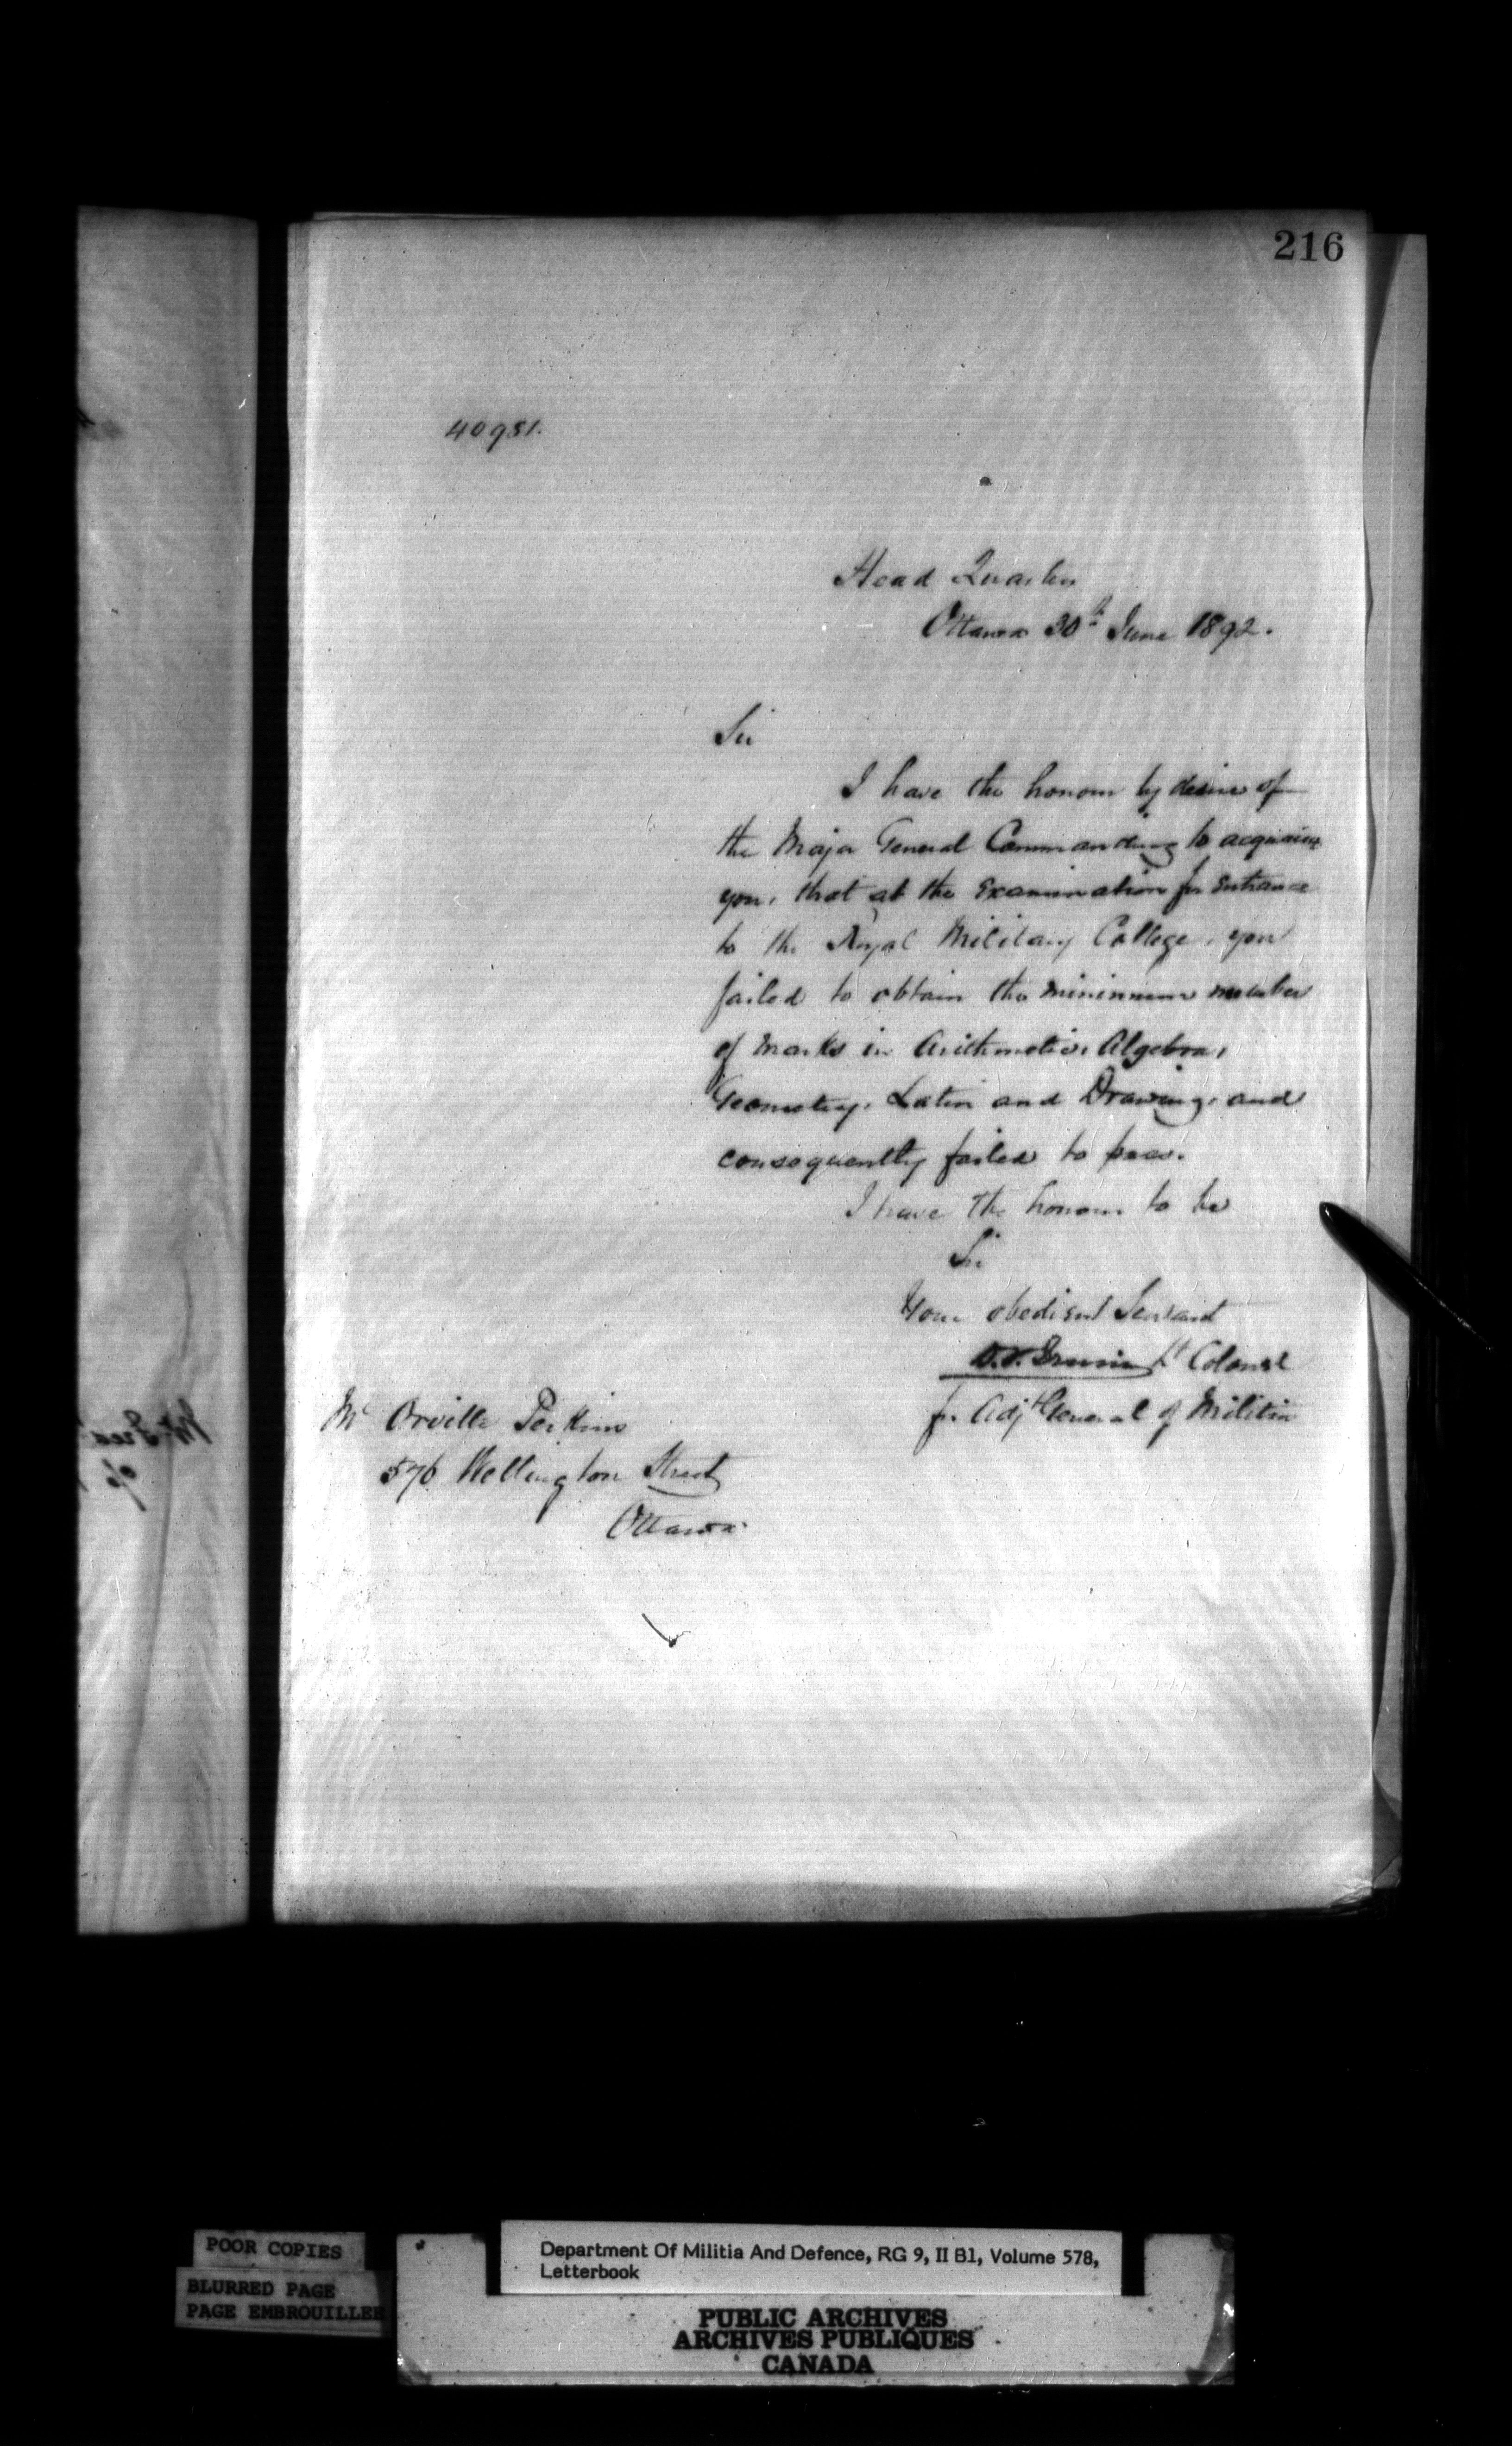 216
40951.
Head Quarters
Ottawa 30th June 1892.
Sir
I have the honour by desire of
the Major General Commanding to acquaint
you, that at the Examination for Entrance
to the Royal Military College, you
failed to obtain the minimum number
of marks in Arithmetic, Algebra,
Geometry, Latin and Drawing, and
consequently failed to pass.
I have the honour to be
Sir
Your obedient Servant
Lt Colonel
for Adjt General of Militia
Mr Orville Perkins
576 Wellington Street
Ottawa.
POOR COPIES
BLURRED PAGE
PAGE EMBROUILLEE
Department Of Militia And Defence, RG 9, II B1, Volume 578,
Letterbook
PUBLIC ARCHIVES
ARCHIVES PUBLIQUES
CANADA